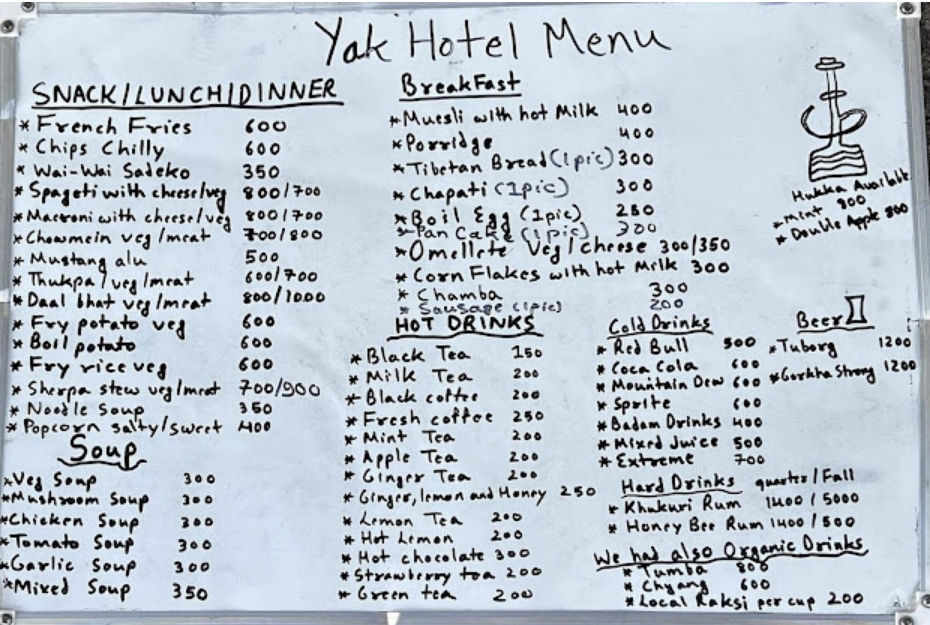 Yak Hotel Menu
SNACK/LUNCH/DINNER
* French Fries 600
* Chips Chilly 600
* Wai-Wai Sadeko 350
* Spageti with cheese/veg 800/700
* Macroni with cheese/veg 800/700
* Chowmein veg/meat 700/800
* Mustang alu 500
* Thukpa/veg/meat 600/700
* Daal bhat veg/meat 800/1000
* Fry potato veg 600
* Boil potato 600
* Fry rice veg 600
* Sherpa stew veg/meat 700/900
* Noodle Soup 350
* Popcorn salty/sweet 400
Soup
* Veg Soup 300
* Mushroom Soup 300
* Chicken Soup 300
* Tomato Soup 300
* Garlic Soup 300
* Mixed Soup 350
BreakFast
* Muesli with hot Milk 400
* Porridge 400
* Tibetan Bread (1pic) 300
* Chapati (1pic) 300
* Boil Egg (1pic) 250
* Pan Cake (1pic) 300
* Omellete Veg/cheese 300/350
* Corn Flakes with hot Milk 300
* Chamba 300
* Sausage (1pic) 200
HOT DRINKS
* Black Tea 150
* Milk Tea 200
* Black coffee 200
* Fresh coffee 250
* Mint Tea 200
* Apple Tea 200
* Ginger Tea 200
* Ginger, lemon and Honey 250
* Lemon Tea 200
* Hot Lemon 200
* Hot chocolate 300
* Strawberry tea 200
* Green tea 200
Hukka Available
* Mint 800
* Double Apple 800
Cold Drinks
* Red Bull 500
* Coca Cola 600
* Mountain Dew 600
* Sprite 600
* Badam Drinks 400
* Mixed Juice 500
* Extreme 700
Beer
* Tuborg 1200
* Gorkha Strong 1200
Hard Drinks quarter/Fall
* Khukuri Rum 1400/5000
* Honey Bee Rum 1400/500
We had also Organic Drinks
* Tumba 800
* Chyang 600
* Local Raksi per cup 200